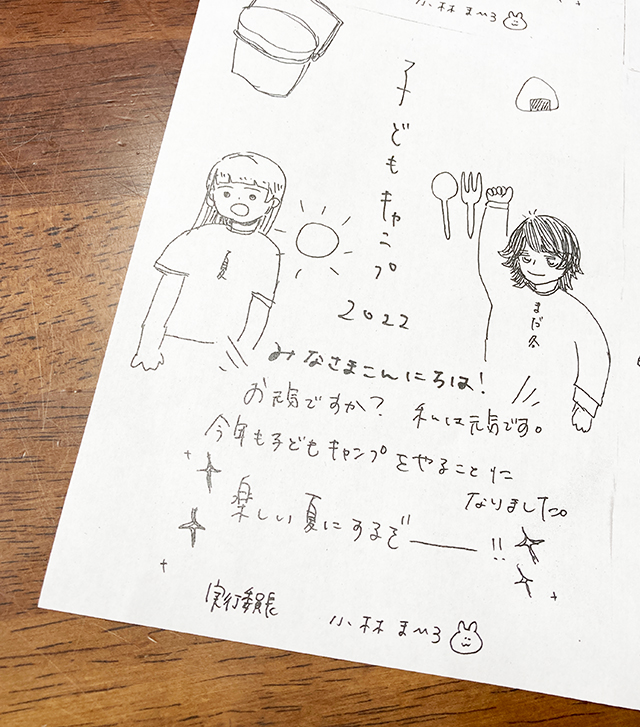 小林まいろ
子どもキャンプ
2022
夏
まだ冬
みなさまこんにちは!
お元気ですか? 私は元気です。
今年も子どもキャンプをやることに
なりました。
楽しい夏にするぞ――!!
実行委員長
小林まいろ